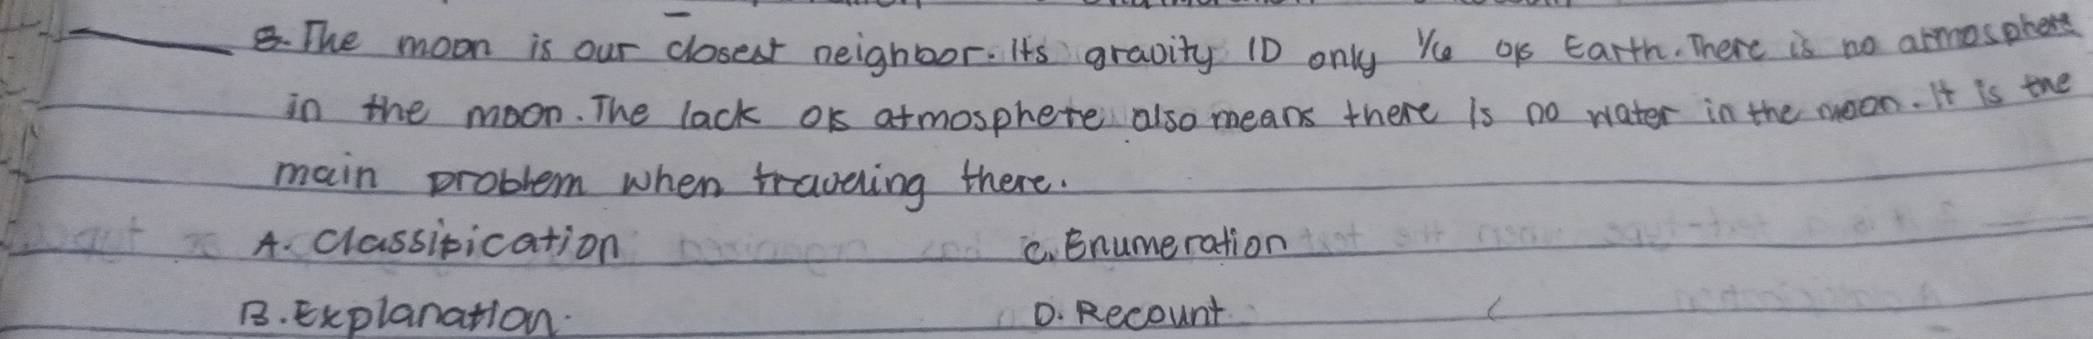 8. The moon is our closest neighbor. Its gravity is only 1/6 of Earth. There is no atmosphere
in the moon. The lack of atmosphere also means there is no water in the moon. It is the
main problem when traveling there.
A. Classification C. Enumeration
B. Explanation. D. Recount